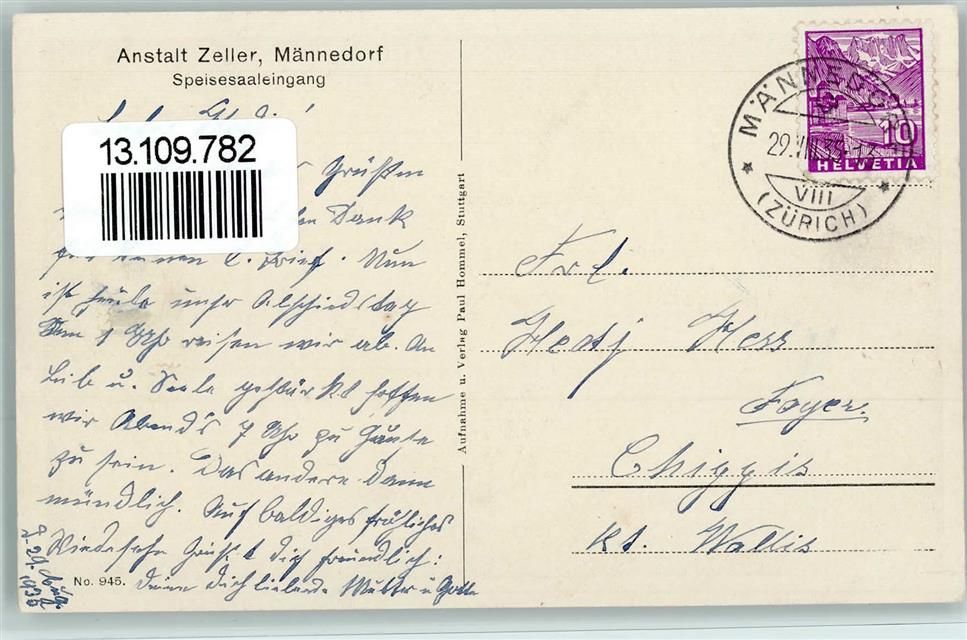 Anstalt Zeller, Männedorf
Speisesaaleingang
13.109.782
Grüßen
Dank
für deinen l. Brief. Nun
ist heute unser Abschiedstag
1 Uhr reisen wir ab. An
Leib u. Seele gestärkt hoffen
wir Abends 7 Uhr zu Hause
zu sein. Das andere dann
mündlich. Auf baldiges fröhliches
Wiedersehn grüßt dich freundlich:
Deine dich liebende Mutter u
d. 29. Aug.
1935
No. 945.
Aufnahme u. Verlag Paul Hommel, Stuttgart
MÄNNEDORF
29.VIII.35
VIII
(ZÜRICH)
10
HELVETIA
Frl.
Hedj Hess
Foyer.
Chippis
Kt. Wallis